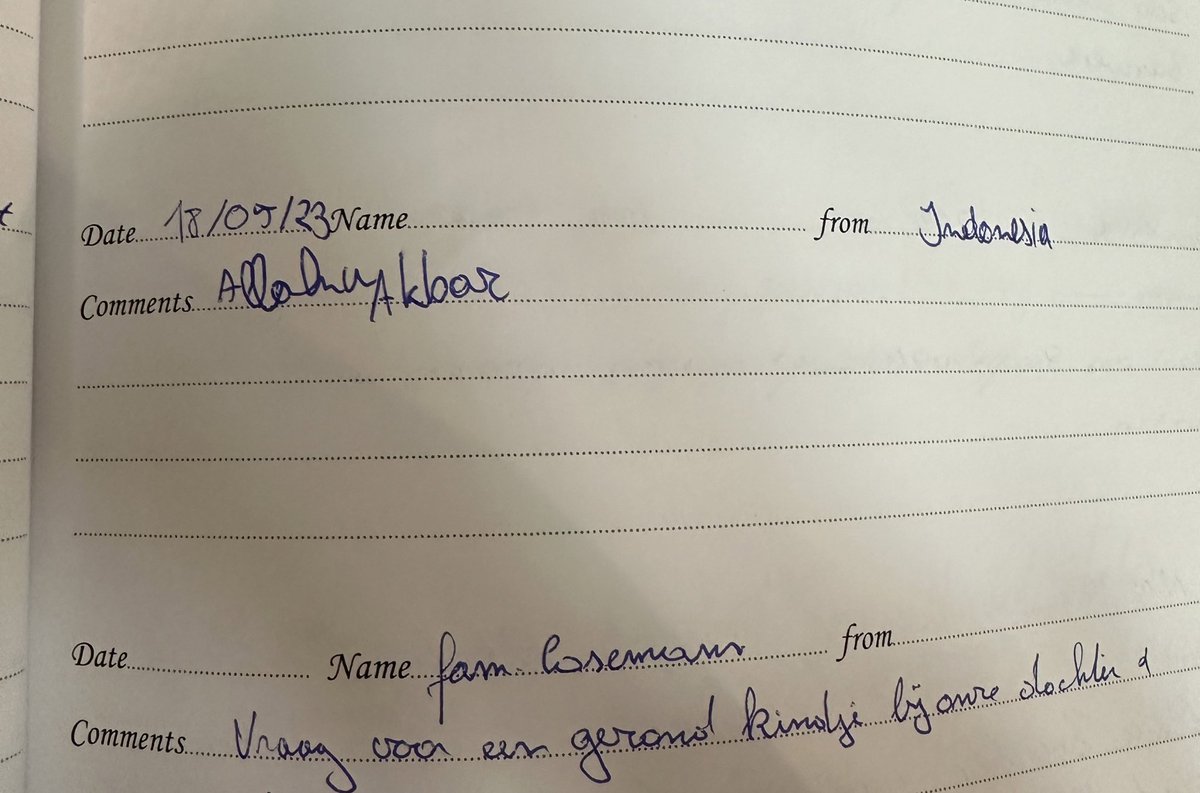 Date 18/09/23 Name from Indonesia
Comments Allahu Akbar
Date Name fam. Cosemans from
Comments Vraag voor een gezond kindje bij onze dochter &